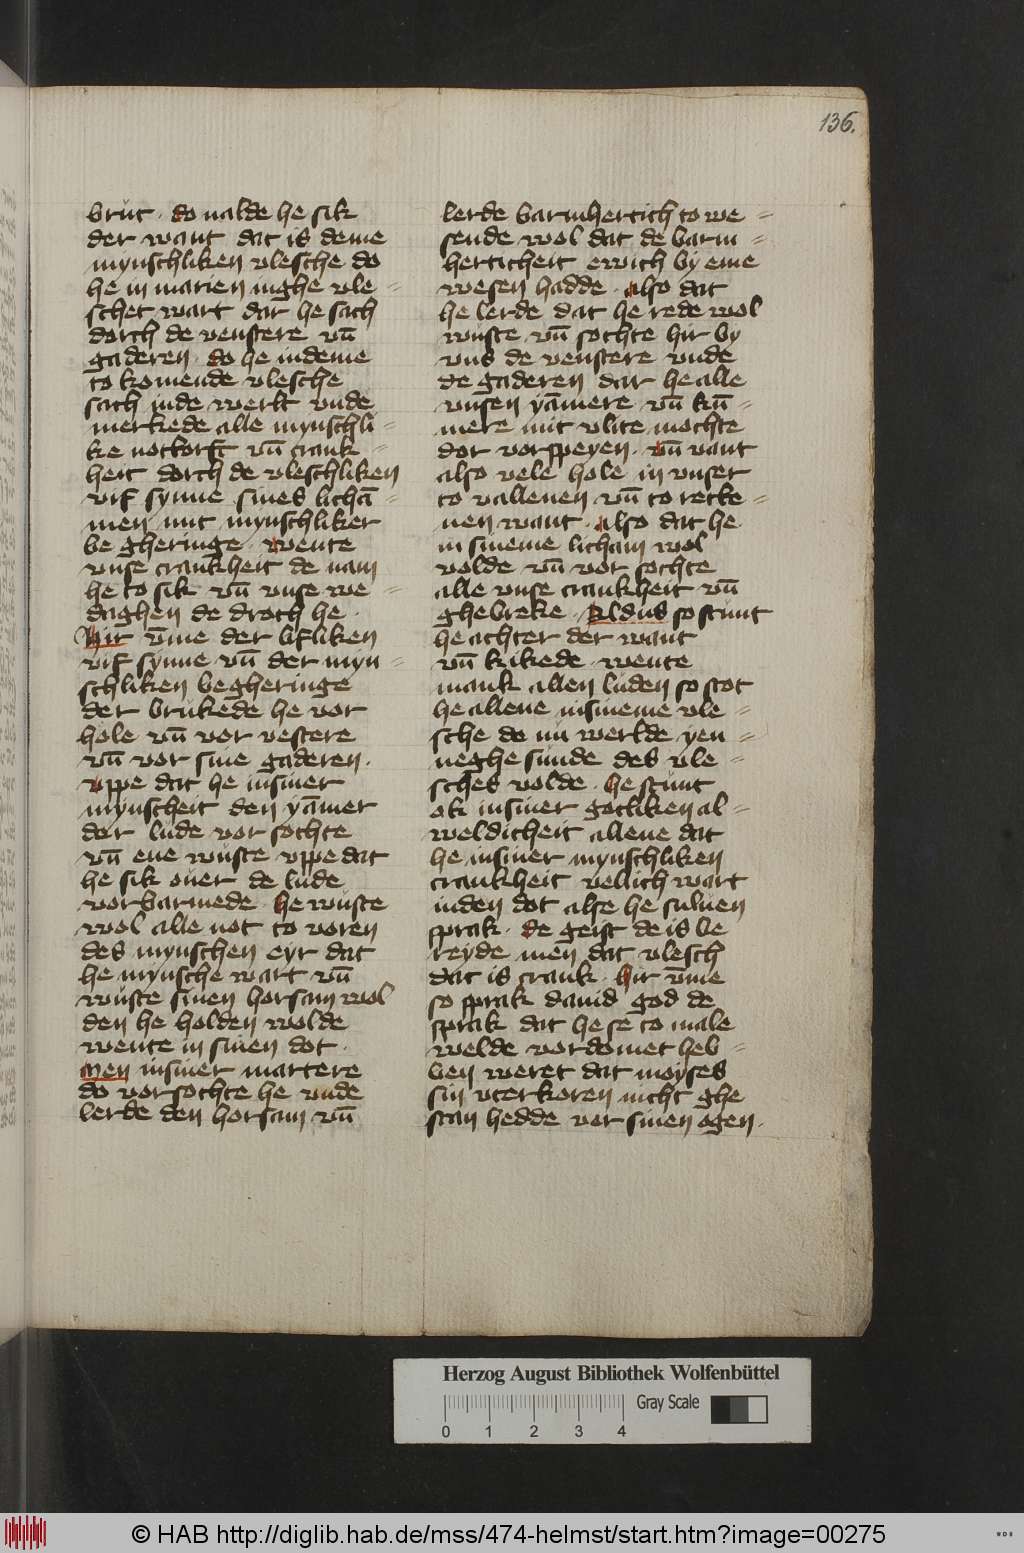 136.
brut · do nalde he sik
der want dat is deme
mynschliken vlesche do
he in marien nighe vle=
schet wart dar he sach
dorch de venstere vn̄
gaderen · do he indeme
to komende vlesche
sach inde werlt vnde
merkede alle mynschli=
ke notdorft vn̄ crank=
heit dorch de vleschliken
vif synne sines lichā=
men mit mynschliker
be gheringe · wente
vnse crankheit de nam
he to sik vn̄ vnse we=
daghen de droch he ·
Hir v̄me der lifliken
vif synne vn̄ der myn=
schliken begheringe
der brukede he vor
hole vn̄ vor vestere
vn̄ vor sine gaderen ·
vppe dat he insiner
mynscheit den yāmer
der lude vor sochte
vn̄ ene wuste vppe dat
he sik ouer de lude
vorbarmede · he wuste
wol alle not to voren
des mynschen eyr dat
he mynsche wart vn̄
wuste sinen horsam wol
den he holden wolde
wente in sinen dot ·
Men insiner martere
do vorsochte he vnde
lerde den horsam vn̄
lerde barmhertich to we=
sende wol dat de barm=
herticheit ewich by eme
wesen hadde · also dat
he lerde dat he rede wol
wuste vn̄ sochte hir by
vns de venstere vnde
de gaderen dar he alle
vnsen yāmere vn̄ kū=
mere mit vlite mochte
dor vorspeyen · vn̄ vant
also vele hole in vnser
to vallenen vn̄ to recke=
nen want · also dat he
in sineme licham wol
volde vn̄ vor sochte
alle vnse crankheit vn̄
ghebreke · Aldus so stunt
he achter der want
vn̄ kikede · wente
mank allen luden so stot
he allene insineme vle=
sche do nu werlde yen=
neghe sunde des vle=
sches volde · he stunt
ok insiner gotliken al=
weldicheit allene dat
he insiner mynschliken
crankheit vellich wart
inden dot alse he suluen
sprak · de geist de is be
reyde men dat vlesch
dat is crank · hir v̄me
so sprak dauid god de
sprak dat he se to male
welde vordomet heb=
ben weret dat moyses
sin vterkoren nicht ghe
stan hedde vor sinen ogen ·
Herzog August Bibliothek Wolfenbüttel
Gray Scale
0 1 2 3 4
© HAB http://diglib.hab.de/mss/474-helmst/start.htm?image=00275
WDB